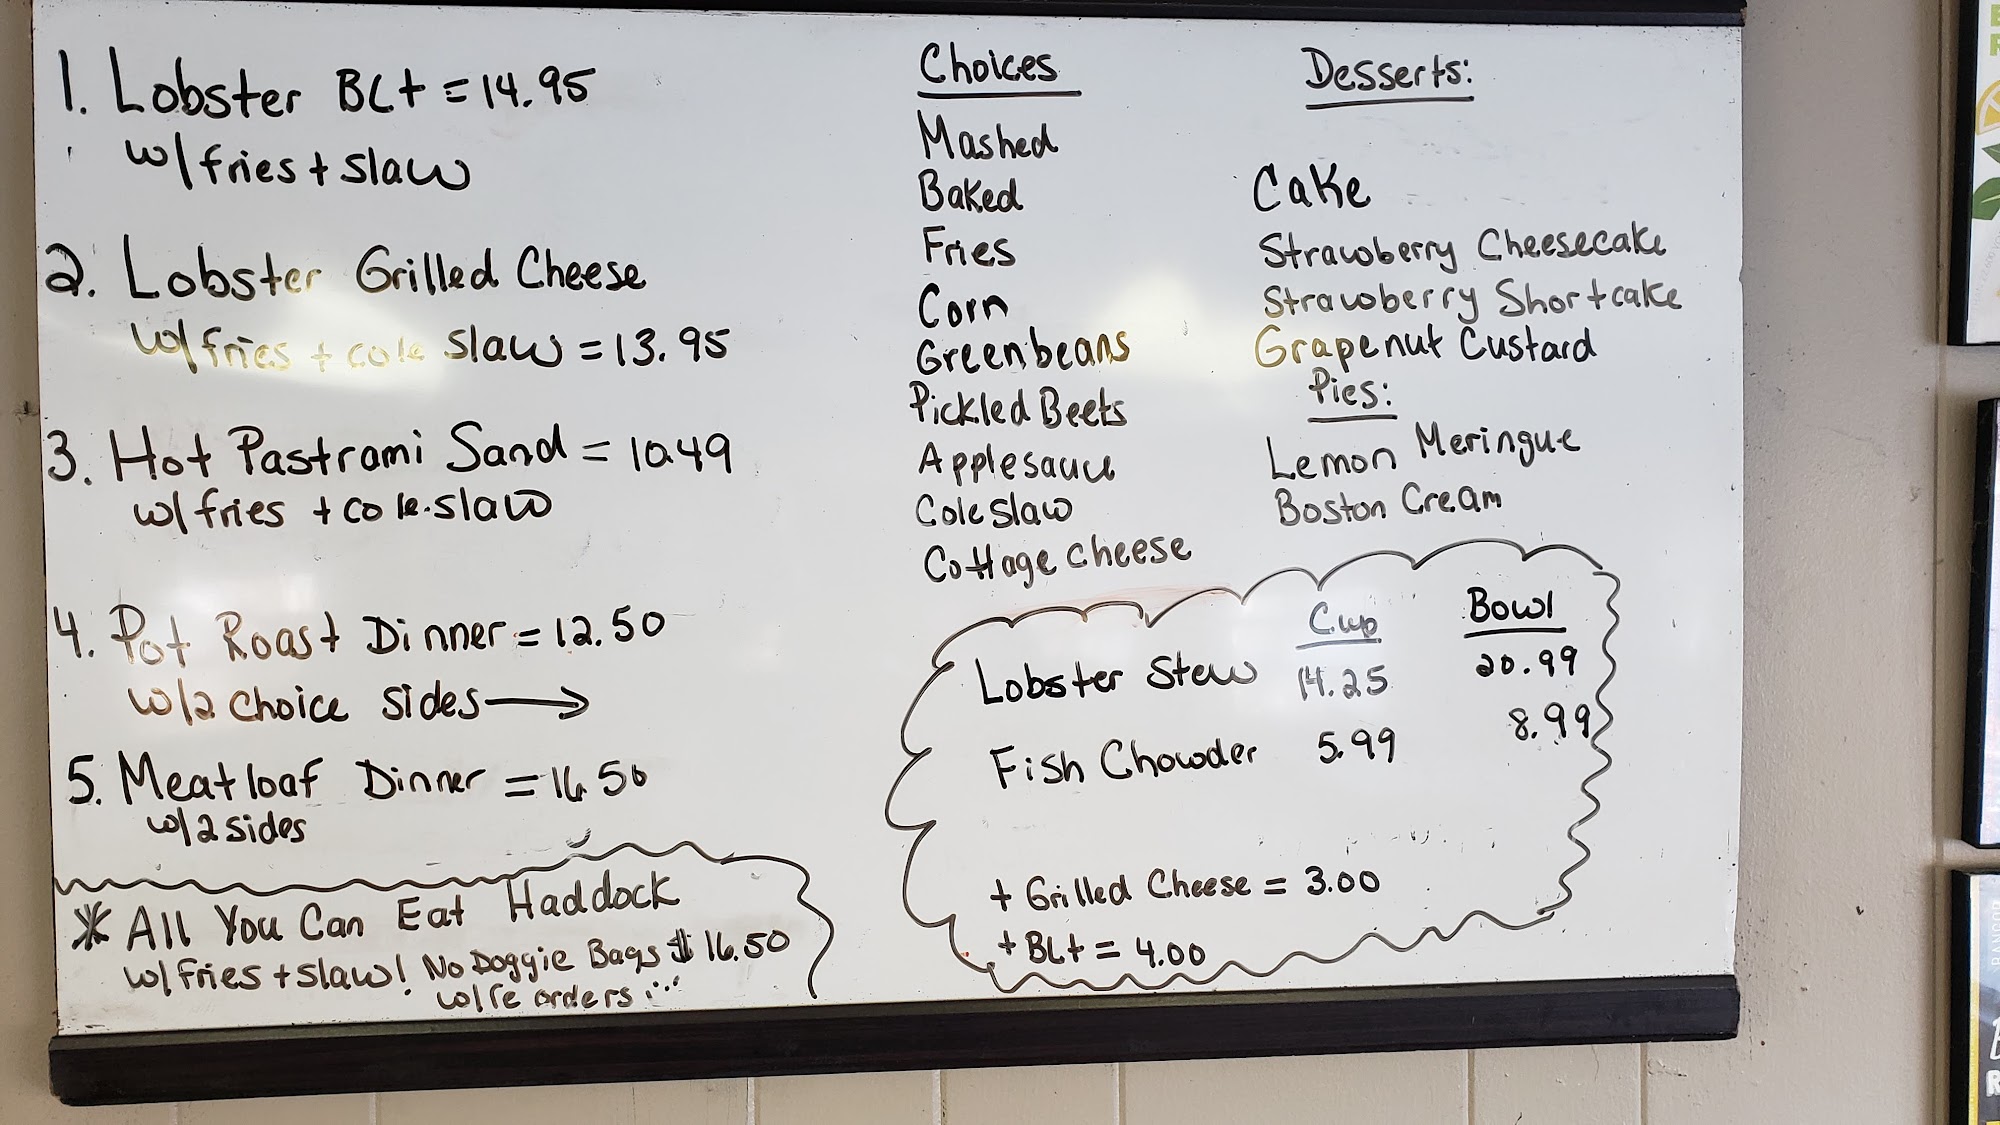 1. Lobster BLt = 14.95
w/fries + slaw
2. Lobster Grilled Cheese
w/fries + cole slaw = 13.95
3. Hot Pastrami Sand = 10.49
w/fries + cole.slaw
4. Pot Roast Dinner = 12.50
w/2 choice sides →
5. Meatloaf Dinner = 16.50
w/2 sides
* All You Can Eat Haddock
w/fries + slaw! No Doggie Bags $ 16.50
w/re orders
Choices
Mashed
Baked
Fries
Corn
Greenbeans
Pickled Beets
Applesauce
Cole Slaw
Cottage cheese
Desserts:
Cake
Strawberry Cheesecake
Strawberry Shortcake
Grapenut Custard
Pies:
Lemon Meringue
Boston Cream
Cup Bowl
Lobster Stew 14.25 20.99
Fish Chowder 5.99 8.99
+ Grilled Cheese = 3.00
+ BLt = 4.00